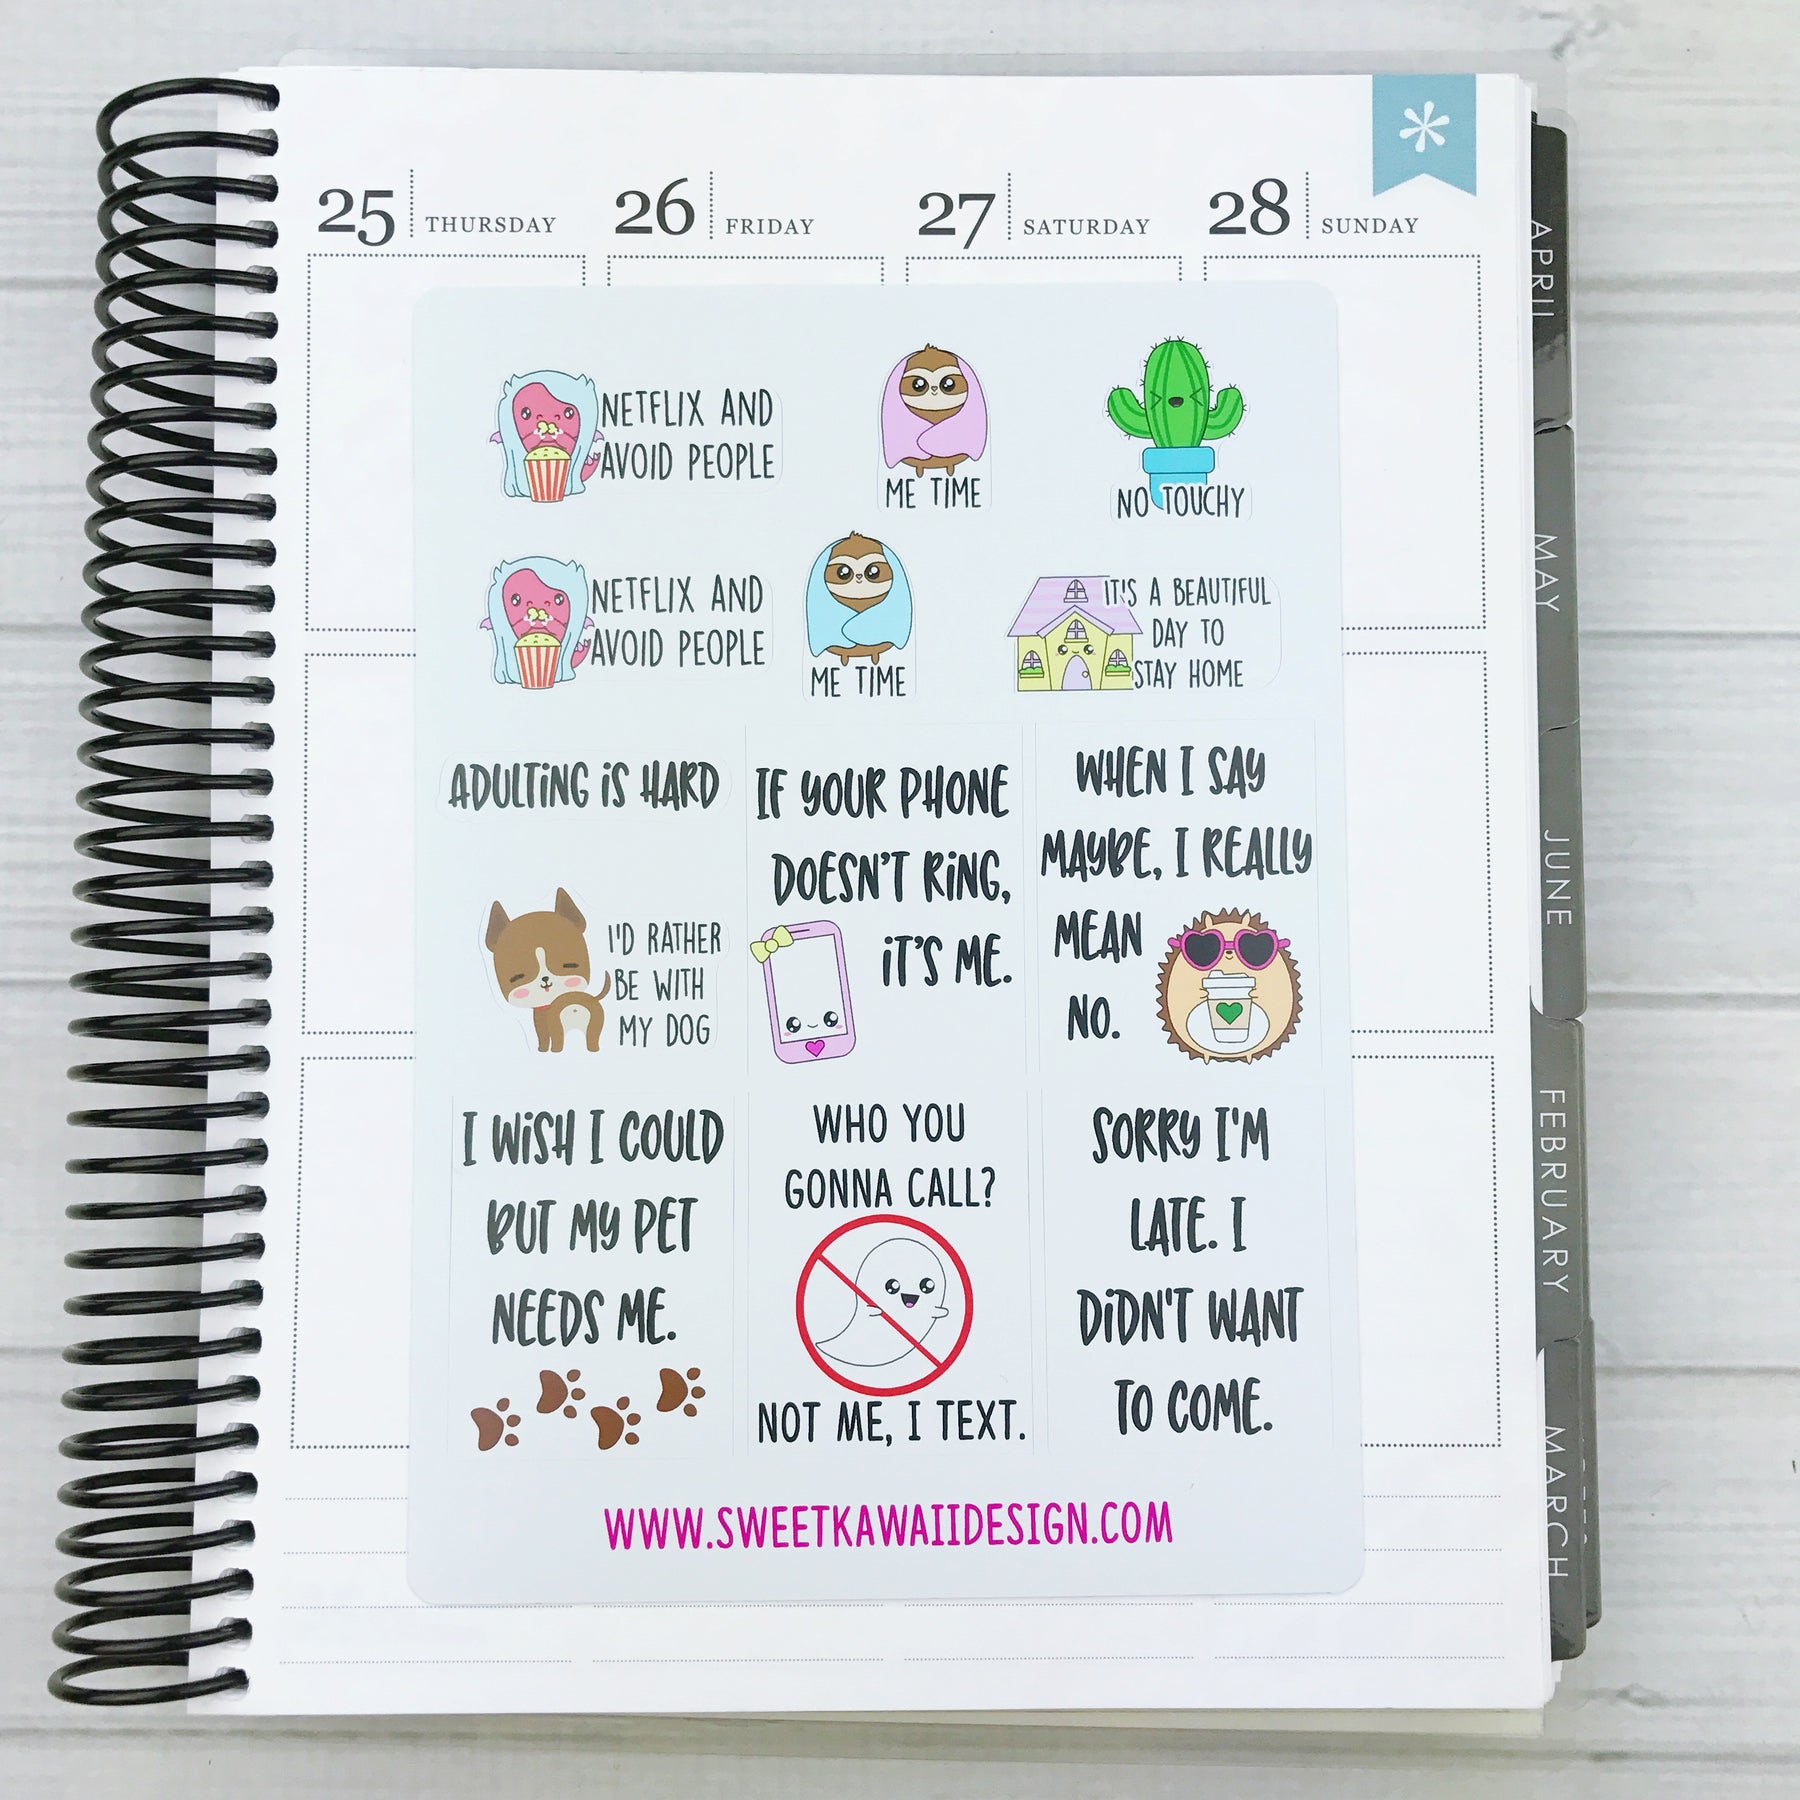 25 THURSDAY
26 FRIDAY
27 SATURDAY
28 SUNDAY
NETFLIX AND
AVOID PEOPLE
ME TIME
NO TOUCHY
NETFLIX AND
AVOID PEOPLE
ME TIME
IT'S A BEAUTIFUL
DAY TO
STAY HOME
ADULTING IS HARD
IF YOUR PHONE
DOESN'T RING,
IT'S ME.
WHEN I SAY
MAYBE, I REALLY
MEAN
NO.
I'D RATHER
BE WITH
MY DOG
I WISH I COULD
BUT MY PET
NEEDS ME.
WHO YOU
GONNA CALL?
NOT ME, I TEXT.
SORRY I'M
LATE. I
DIDN'T WANT
TO COME.
WWW.SWEETKAWAIIDESIGN.COM
APRIL
MAY
JUNE
FEBRUARY
MARCH